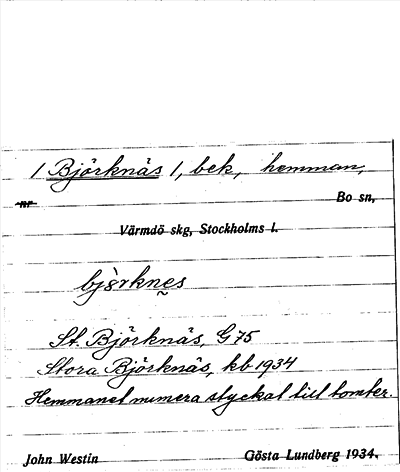 / Björknäs /, bek, hemman,
nr Bo sn,
Värmdö skg, Stockholms l.
St. Björknäs, G 75
Stora Björknäs, kb 1934
Hemmanet numera styckat till tomter.
John Westin Gösta Lundberg 1934.